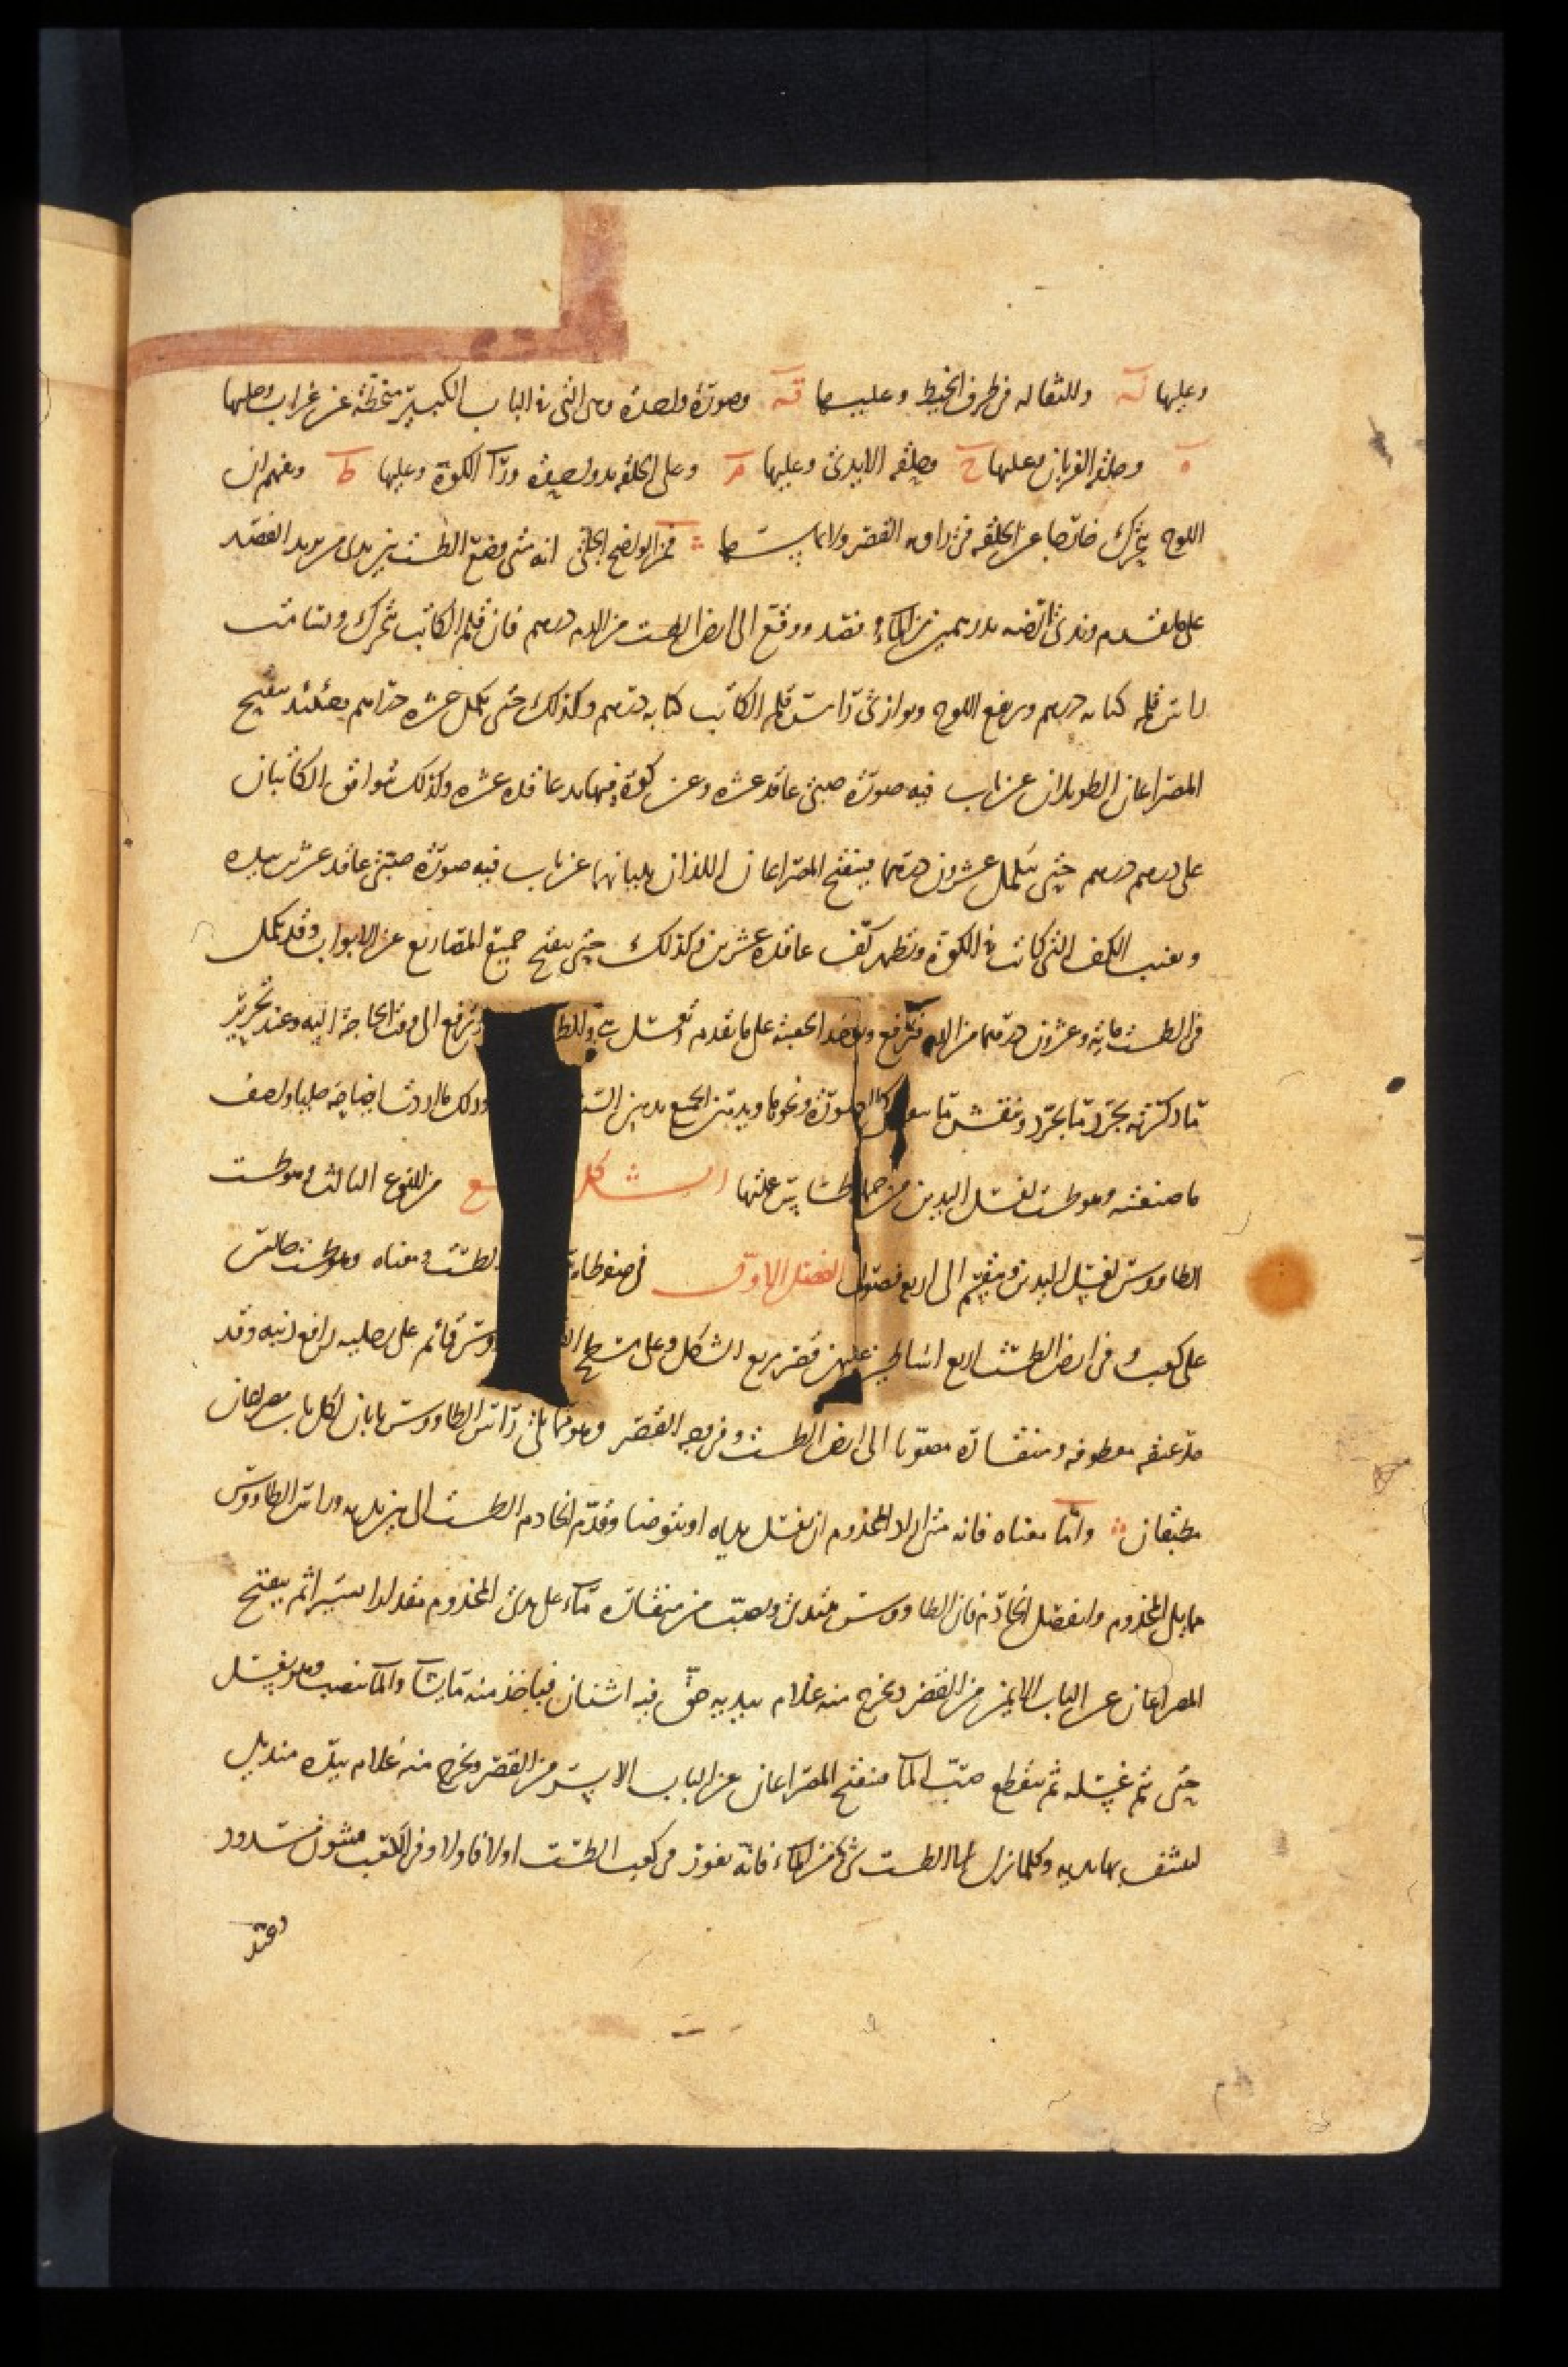 وعليها لـه وللثقاله فى طرف الخيط وعليها قـه وصورة واحدة وهى التى فى الباب الكبير منحطة عن غراب وعليها
ه وحلقه الفربان وعليها ح وحلقه الايدى وعليها م وعلى الحلقه يد واحدة ورآ الكوة وعليها ط ومفهم ان
اللوح يتحرك خارجا عن الحلقه فى زاويه القصر ولا يماسها فمن الواضح الجلى انه متى وضع الطست بين يدى مريد الفصد
على ما تقدم وندى ارضه بدرهمين من الماء وفصد ووقع الى ارض الطست من الدم درهم فان قلم الكاتب تحرك وسامت
راس قلمه كتابه درهم ويرفع اللوح ويوازى راس قلم الكاتب كتابه درهم وكذلك حتى يكمل عشره دراهم فحينئذ ينفتح
المصراعان الطويلان عن باب فيه صورة صبى عاقد عشره وعن كوة فيها يد عاقده عشره وكذلك يتوافق الكاتبان
على درهم درهم حتى يتكمل عشرون درهما فينفتح المصراعان اللذان يليانهما عن باب فيه صورة صبى عاقد عشرين بيده
وتغيب الكف التى كانت فى الكوة وتظهر كف عاقده عشرين وكذلك حتى ينفتح جميع المصاريع عن الابواب وقد تكمل
فى الطست مايه وعشرون درهما من الدم فترفع على ما تقدم وترفع الى وقت الحاجة اليه وعند تحرير
ما ذكرته يجرد ما يجرد وينقش ما صورة ونحوها ويدهن الجميع وذلك ما اردت ايضاحه جليا واصف
ما صنعته وهو طست لغسل اليدين الشكل ـع من النوع الثالث وهو طست
الطاووس لغسل اليدين وينقسم الى اربع فصول الفصل الاول فى صفه الطست ومعناه وهو طست جالس
على كعب وفى ارض الطست اربع اساطين عليهن قصر مربع الشكل وعلى سطح ـووس قائم على رجليه رافع ذنبه وقد
مد عنقه معطوفه ومنقاره مصوبا الى ارض الطست وفى وجه القصر وهو مما يلى راس الطاووس بابان لكل باب مصراعان
مطبقان واما معناه فانه متى اراد المخدوم ان يغسل يداه او يتوضا وقدم الخادم الطست الى بين يديه وراس الطاووس
مما يلى المخدوم وانفصل الخادم فان الطاووس يبتدى ويصب من منقاره ماء على يدى المخدوم مقدارا يسيرا ثم ينفتح
المصراعان عن الباب الايمن من القصر ويخرج منه غلام بيديه حق فيه اشنان فياخذ منه ما يشآ والمآ ينصب وهو يغسل
حتى تم غسله ثم ينقطع صب المآ فينفتح المصراعان عن الباب الايسر من القصر ويخرج منه غلام بيده منديل
لينشف بها يديه وكلما نزل الى الطست شى من الماء فانه يغوز فى كعب الطست اولا فاولا وفى الكعب مسدود
وعند